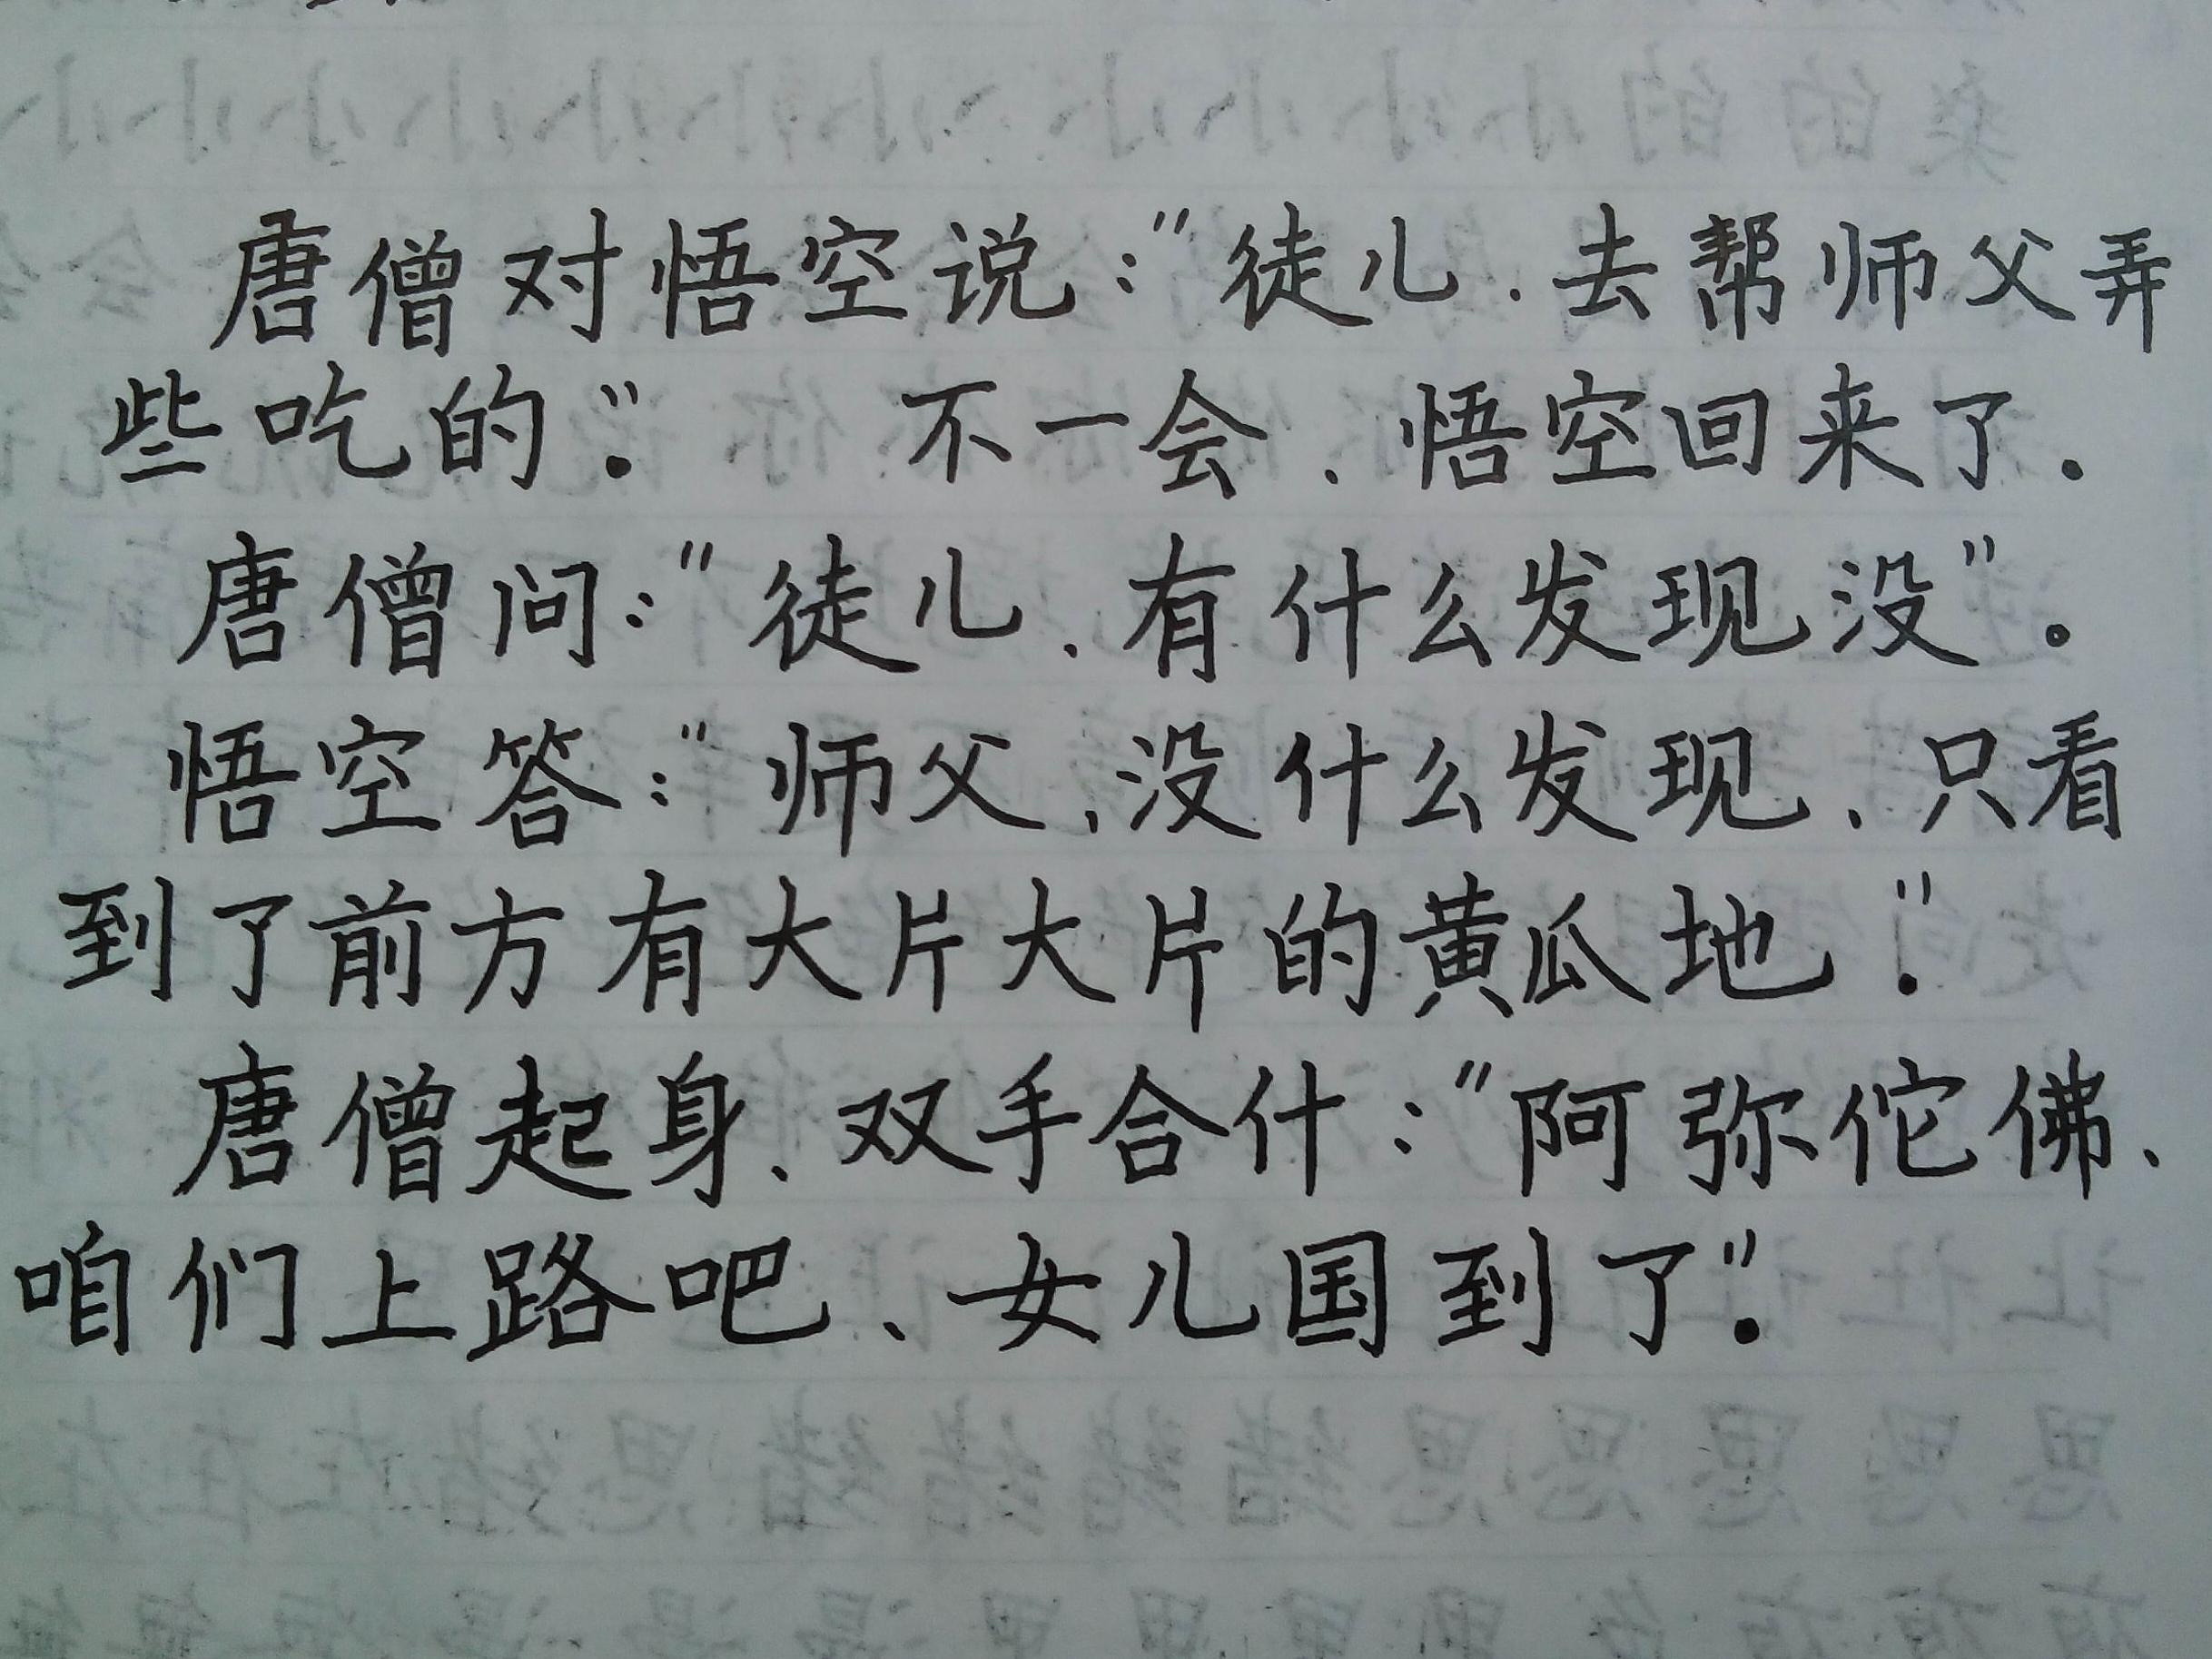 唐僧对悟空说："徒儿.去帮师父弄
些吃的."  不一会、悟空回来了.
唐僧问："徒儿、有什么发现没".
悟空答："师父、没什么发现、只看
到了前方有大片大片的黄瓜地."
唐僧起身、双手合什："阿弥佗佛、
咱们上路吧、女儿国到了".